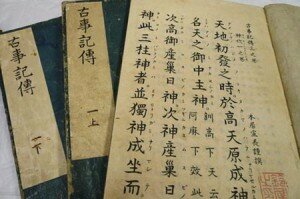 古事記傳三之卷
神代一之卷
本居宣長謹撰
天地初發之時於高天原成神
名天之御中主神訓高下天云阿麻下效此
次高御產巢日神次神產巢日
神此三柱神者並獨神成坐而
古事記傳
一上
古事記傳
一下